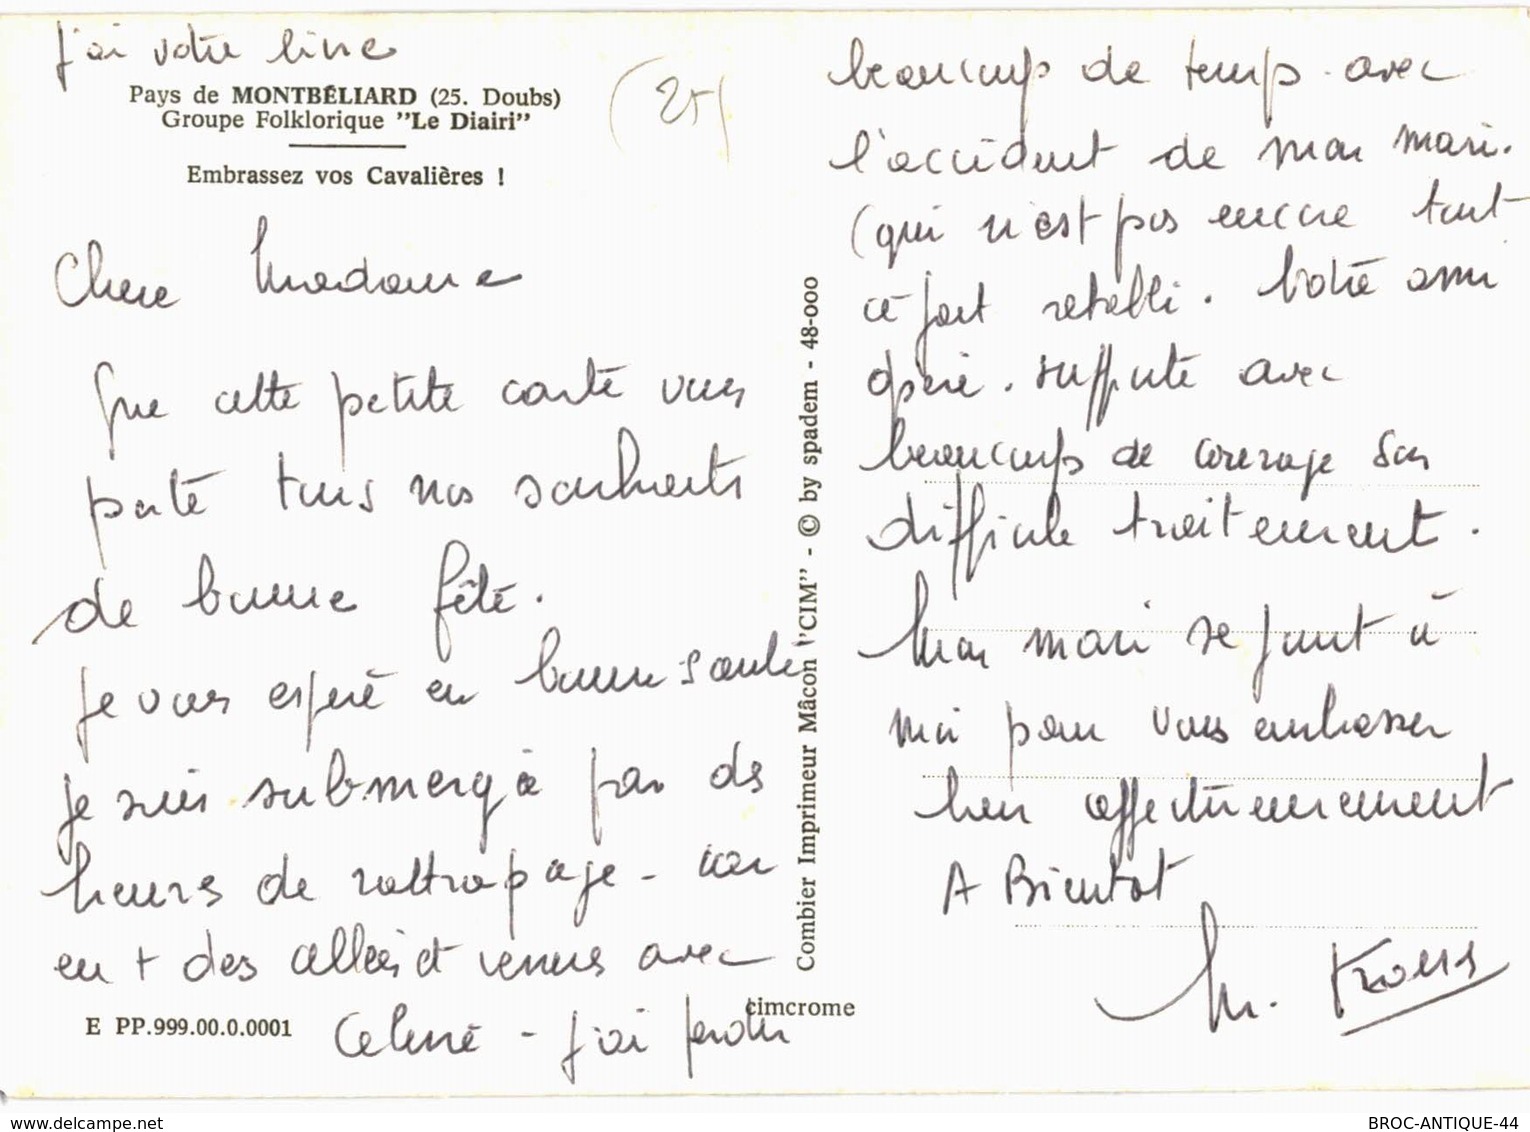 J'ai votre livre
Pays de MONTBÉLIARD (25. Doubs)
Groupe Folklorique "Le Diairi"
Embrassez vos Cavalières !
(25)
Chere Madame
Que cette petite carte vous
porte tous nos souhaits
de bonne fête.
Je vous espère en bonne santé
je suis submergée par des
heures de rattrapage - car
en + des allées et venues avec
Celine - j'ai perdu
E PP.999.00.0.0001
cimcrome
Combier Imprimeur Mâcon "CIM" - © by spadem - 48-000
beaucoup de temps avec
l'accident de mon mari.
(qui n'est pas encore tout
à fait retabli. Votre ami
opéré. supporte avec
beaucoup de courage son
difficile traitement.
Mon mari se joint à
moi pour vous embrasser
bien affectueusement
A Bientot
M.
www.delcampe.net
BROC-ANTIQUE-44